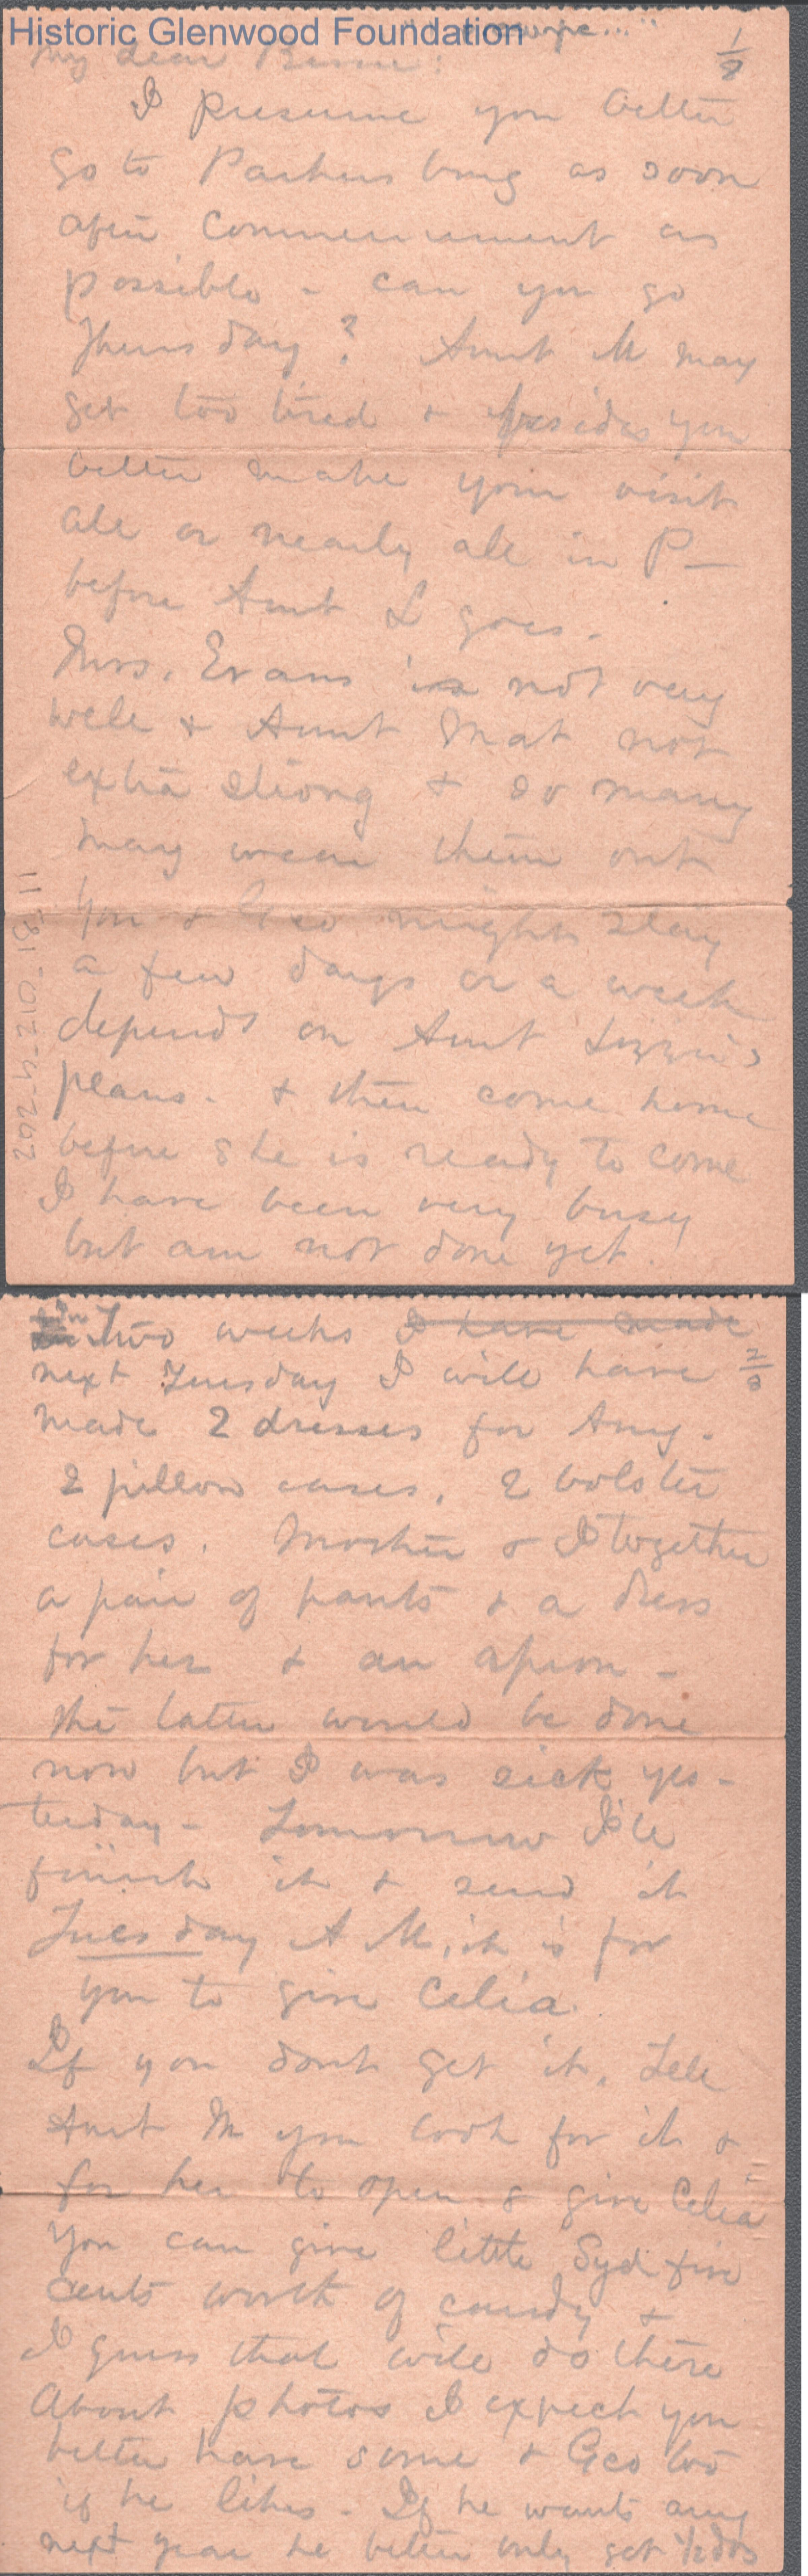 Historic Glenwood Foundation
1/8
My dear Bessie:
I presume you better
go to Parkersburg as soon
after Commencement as
possible - can you go
Thursday? Aunt M may
get too tired & besides you
better make your visit
all or nearly all in P—
before Aunt L goes.
Mrs. Evans is not very
well & Aunt Mat not
extra strong & so many
may wear them out
You & Geo might stay
a few days or a week
depends on Aunt Lizzie's
plans. & then come home
before she is ready to come
I have been very busy
but am not done yet.
292-4-210-181-11
in Two weeks I have made
next Tuesday I will have 2/8
made 2 dresses for Amy.
2 pillow cases, 2 bolster
cases. Mother & I together
a pair of pants & a dress
for her & an apron -
the latter would be done
now but I was sick yes-
terday - Tomorrow I'll
finish it & send it
Tuesday A M, it is for
you to give Celia.
If you dont get it, Tell
Aunt M you look for it &
for her to open & give Celia
You can give little Syd five
cents worth of candy &
I guess that will do there
About photos I expect you
better have some & Geo too
if he likes - If he wants any
next year he better only get 1/2 dos